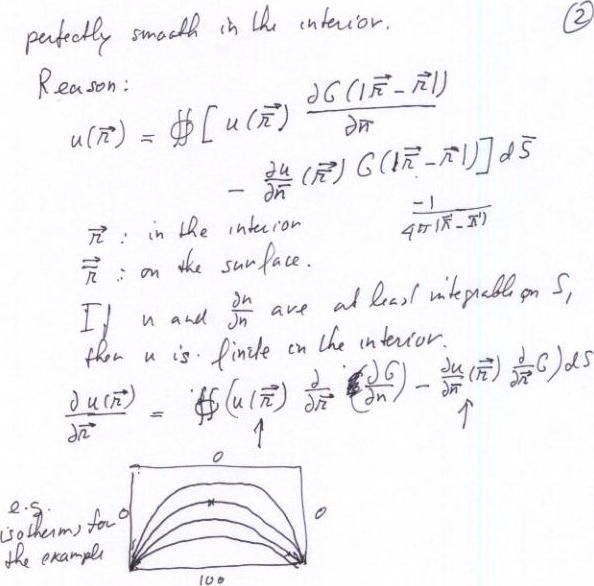 ②
perfectly smooth in the interior.
Reason:
u(r⃗) = ∯ [ u(r̄⃗) ∂G(|r̄⃗ - r⃗|)/∂n̄
- ∂u/∂n̄ (r̄⃗) G(|r̄⃗ - r⃗|) ] dS̄
-1/(4π|r̄ - r|)
r⃗ : in the interior
r̄⃗ : on the surface.
If u and ∂u/∂n are at least integrable on S,
then u is finite in the interior.
∂u(r⃗)/∂r⃗ = ∯ (u(r̄⃗) ∂/∂r⃗ (∂G/∂n) - ∂u/∂n̄ (r̄⃗) ∂/∂r⃗ G) dS
↑ ↑
0
e.g. 0 0
isotherms for
the example
100